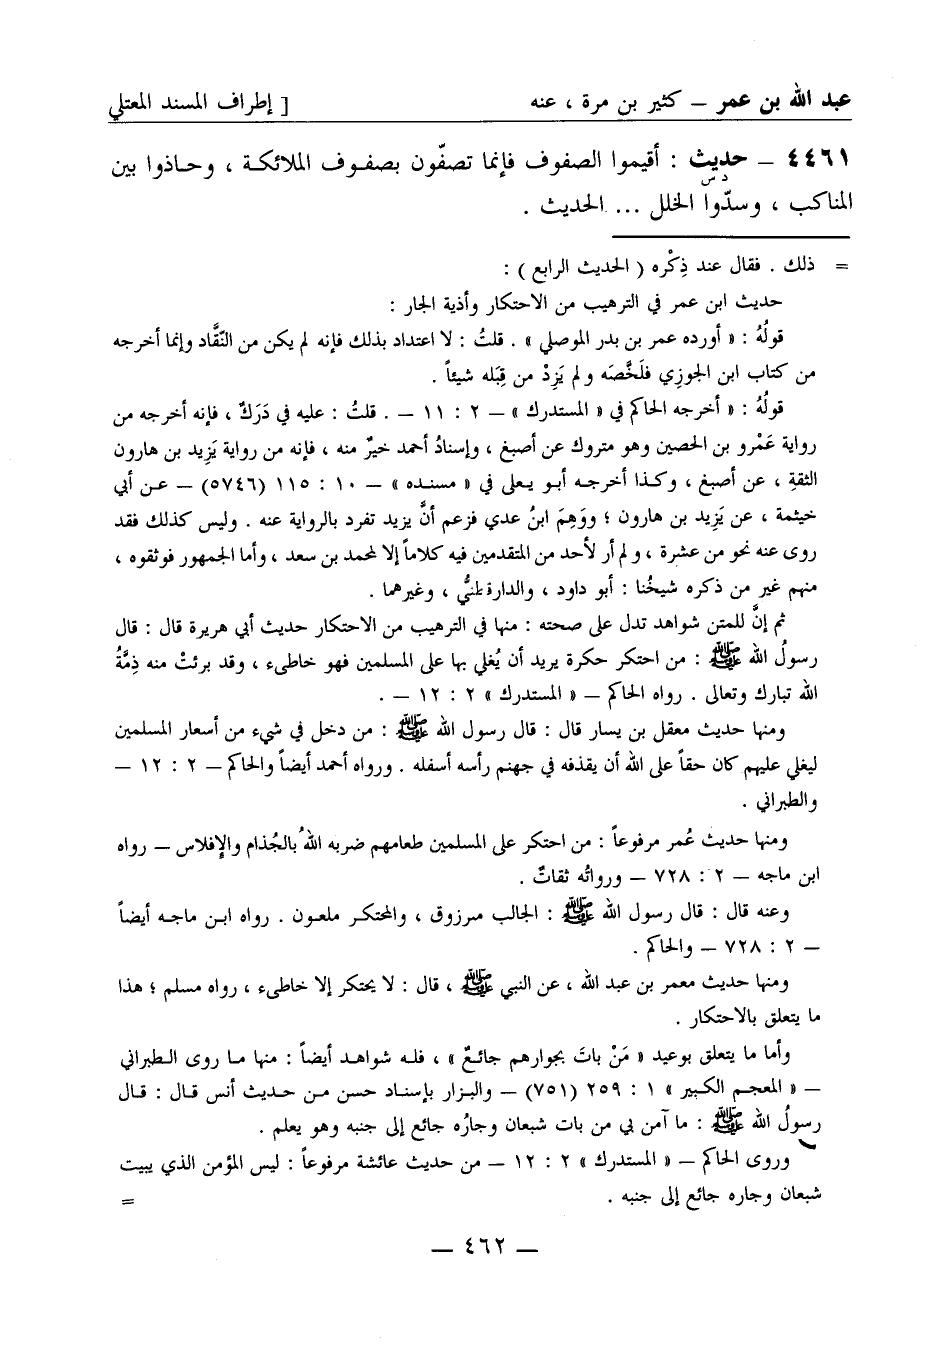 عبد الله بن عمر – كثير بن مرة ، عنه [ إطراف المسند المعتلي
٤٤٦١ – حديث : أقيموا الصفوف فإنما تصفّون بصفوف الملائكة ، وحاذوا بين
د س
المناكب ، وسدّوا الخلل ... الحديث .
= ذلك . فقال عند ذِكْره ( الحديث الرابع ) :
حديث ابن عمر في الترهيب من الاحتكار وأذية الجار :
قولُهُ : « أورده عمر بن بدر الموصلي » . قلتُ : لا اعتداد بذلك فإنه لم يكن من النّقَّاد وإنما أخرجه
من كتاب ابن الجوزي فلَخَّصَه ولم يَزِدْ من قِبَله شيئاً .
قولُهُ : « أخرجه الحاكم في « المستدرك » – ٢ : ١١ – . قلتُ : عليه في دَرَكٌ ، فإنه أخرجه من
رواية عَمْرو بن الحصين وهو متروك عن أصبغ ، وإسنادُ أحمد خيرٌ منه ، فإنه من رواية يَزِيد بن هارون
الثقةِ ، عن أصبغ ، وكذا أخرجه أبو يعلى في « مسنده » – ١٠ : ١١٥ (٥٧٤٦) – عن أبي
خيثمة ، عن يَزِيد بن هارون ؛ ووَهِمَ ابنُ عدي فزعم أنَّ يزيد تفرد بالرواية عنه . وليس كذلك فقد
روى عنه نحو من عشرة ، ولم أر لأحد من المتقدمين فيه كلاماً إلا لمحمد بن سعد ، وأما الجمهور فوثقوه ،
منهم غير من ذكره شيخُنا : أبو داود ، والدارقطنيُّ ، وغيرهما .
ثم إنَّ للمتن شواهد تدل على صحته : منها في الترهيب من الاحتكار حديث أبي هريرة قال : قال
رسولُ الله ﷺ : من احتكر حكرة يريد أن يُغلي بها على المسلمين فهو خاطىء ، وقد برئتْ منه ذِمَّةُ
الله تبارك وتعالى . رواه الحاكم – « المستدرك » ٢ : ١٢ – .
ومنها حديث معقل بن يسار قال : قال رسول الله ﷺ : من دخل في شيء من أسعار المسلمين
ليغلي عليهم كان حقاً على الله أن يقذفه في جهنم رأسه أسفله . ورواه أحمد أيضاً والحاكم – ٢ : ١٢ –
والطبراني .
ومنها حديث عُمر مرفوعاً : من احتكر على المسلمين طعامهم ضربه اللهُ بالجُذام والإفلاس – رواه
ابن ماجه – ٢ : ٧٢٨ – ورواتُه ثقاتٌ .
وعنه قال : قال رسول الله ﷺ : الجالب مرزوق ، والمحتكر ملعون . رواه ابن ماجه أيضاً
– ٢ : ٧٢٨ – والحاكم .
ومنها حديث معمر بن عبد الله ، عن النبي ﷺ ، قال : لا يحتكر إلا خاطىء ، رواه مسلم ؛ هذا
ما يتعلق بالاحتكار .
وأما ما يتعلق بوعيد « مَنْ باتَ بجوارهم جائعٌ » ، فله شواهد أيضاً : منها ما روى الطبراني
– « المعجم الكبير » ١ : ٢٥٩ (٧٥١) – والبزار بإسناد حسن من حديث أنس قال : قال
رسولُ الله ﷺ : ما آمن بي من بات شبعان وجارُه جائع إلى جنبه وهو يعلم .
وروى الحاكم – « المستدرك » ٢ : ١٢ – من حديث عائشة مرفوعاً : ليس المؤمن الذي يبيت
شبعان وجاره جائع إلى جنبه . =
– ٤٦٢ –